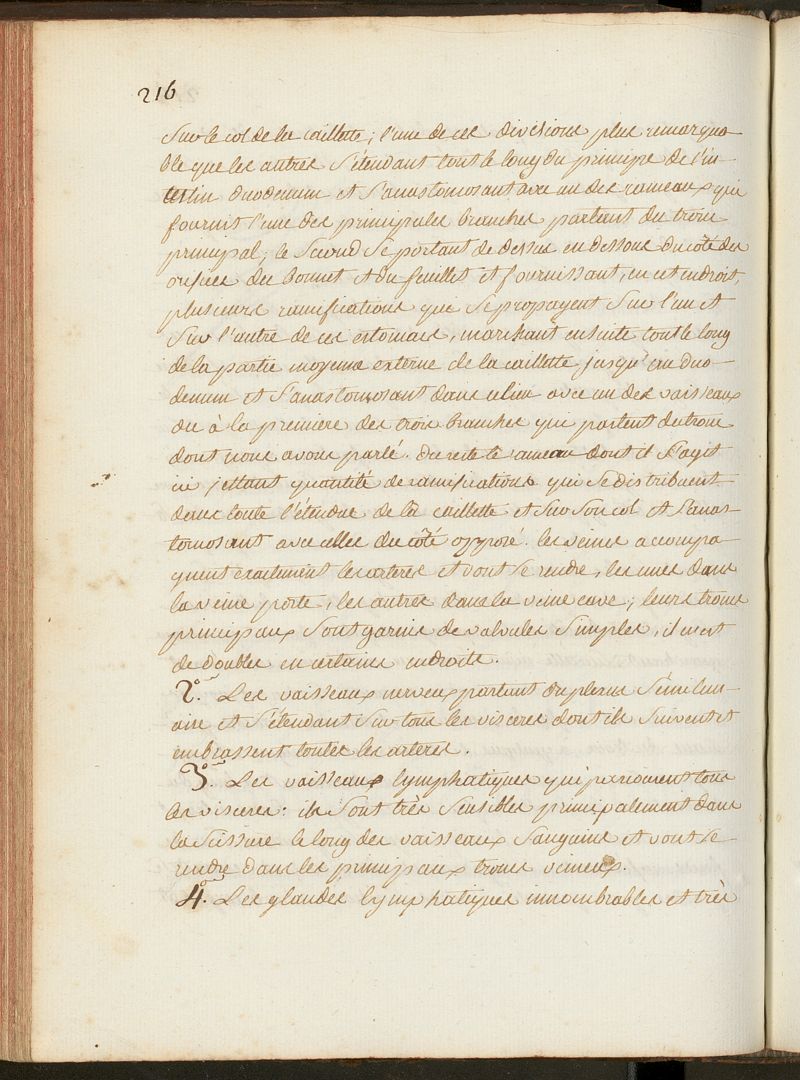 216
Sur le col de la caillette; l'une de ces divisions plus remarqua-
ble que les autres s'étendant tout le long du principe de l'in-
testin duodenum et s'anastomosant avec un des rameaux qui
fournit l'une des principales branches partant du tronc
principal; le second se portant de dessus en dessous du côté des
orifices du bonnet et du feuillet et fournissant, en cet endroit,
plusieurs ramifications qui se propagent sur l'un et
sur l'autre de ces estomacs, marchant ensuite tout le long
de la partie moyenne externe de la caillette jusqu'au duo-
denum et s'anastomosant dans ce lieu avec un des vaisseaux
du à la premiere des trois branches qui partent du tronc
dont nous avons parlé. du reste le rameau dont il s'agit
ici jettant quantité de ramifications qui se distribuent
dans toute l'étendue de la caillette et sur son col et s'anas-
tomosant avec celles du côté opposé. les veines accompa-
gnent exactement les arteres et vont se rendre, les unes dans
la veine porte, les autres dans la veine cave; leurs troncs
principaux sont garnis de valvules simples, il en est
de doubles en certains endroits.
2°. Les vaisseaux nerveux partant du plexus sémilun-
aire et s'étendant sur tous les visceres dont ils suivent et
embrassent toutes les arteres.
3°. Les vaisseaux lymphatiques qui parsément tous
les visceres: ils sont très sensibles principalement dans
la scissure le long des vaisseaux sanguins et vont se
rendre dans les principaux troncs veineux.
4°. Les glandes lymphatiques innombrables et très